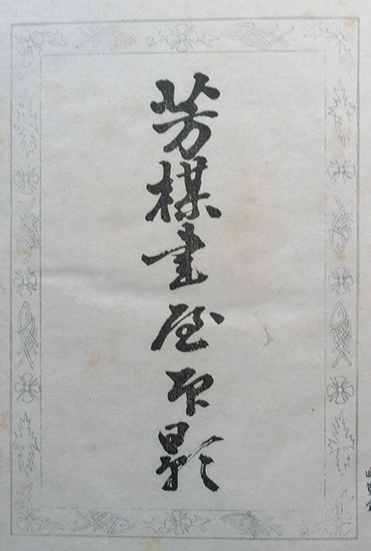 芳楳書屋印影